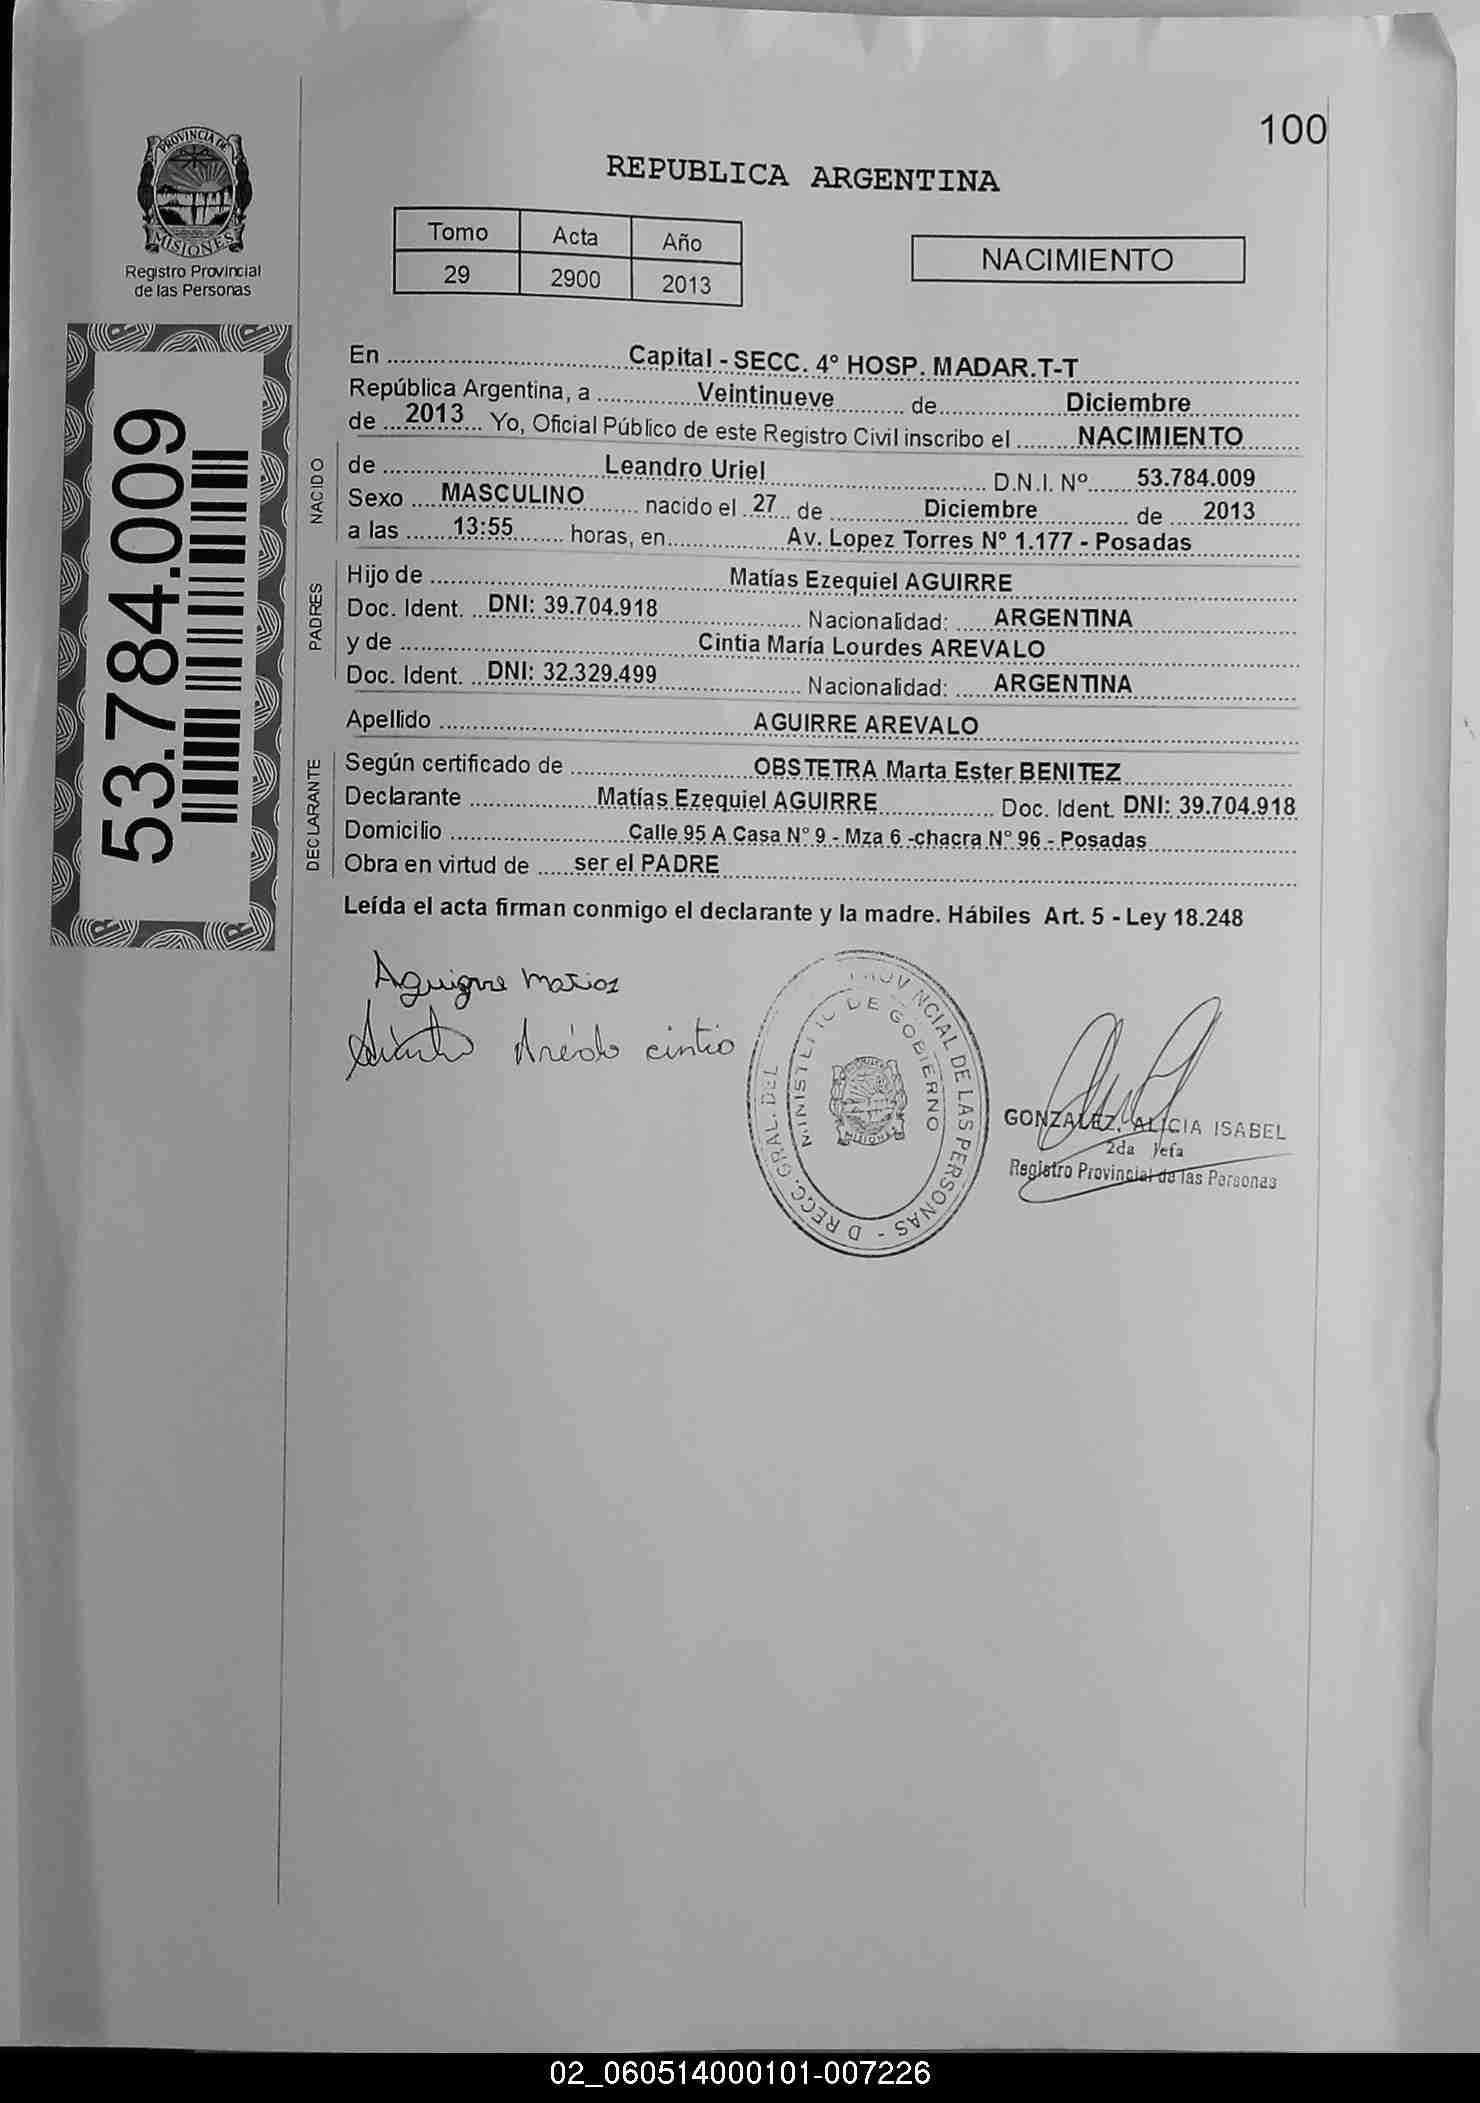 100
PROVINCIA DE
MISIONES
Registro Provincial
de las Personas
REPUBLICA ARGENTINA
Tomo Acta Año
29 2900 2013
NACIMIENTO
53.784.009
En Capital - SECC. 4º HOSP. MADAR.T-T
República Argentina, a Veintinueve de Diciembre
de 2013 Yo, Oficial Público de este Registro Civil inscribo el NACIMIENTO
NACIDO
de Leandro Uriel D.N.I. Nº 53.784.009
Sexo MASCULINO nacido el 27 de Diciembre de 2013
a las 13:55 horas, en Av. Lopez Torres Nº 1.177 - Posadas
PADRES
Hijo de Matías Ezequiel AGUIRRE
Doc. Ident. DNI: 39.704.918 Nacionalidad: ARGENTINA
y de Cintia María Lourdes AREVALO
Doc. Ident. DNI: 32.329.499 Nacionalidad: ARGENTINA
Apellido AGUIRRE AREVALO
DECLARANTE
Según certificado de OBSTETRA Marta Ester BENITEZ
Declarante Matías Ezequiel AGUIRRE Doc. Ident. DNI: 39.704.918
Domicilio Calle 95 A Casa Nº 9 - Mza 6 -chacra Nº 96 - Posadas
Obra en virtud de ser el PADRE
Leída el acta firman conmigo el declarante y la madre. Hábiles Art. 5 - Ley 18.248
cintia
GRAL. DEL PROVINCIAL DE LAS PERSONAS -
MINISTERIO DE GOBIERNO
MISIONES
GONZALEZ, ALICIA ISABEL
2da Jefa
Registro Provincial de las Personas
02_060514000101-007226